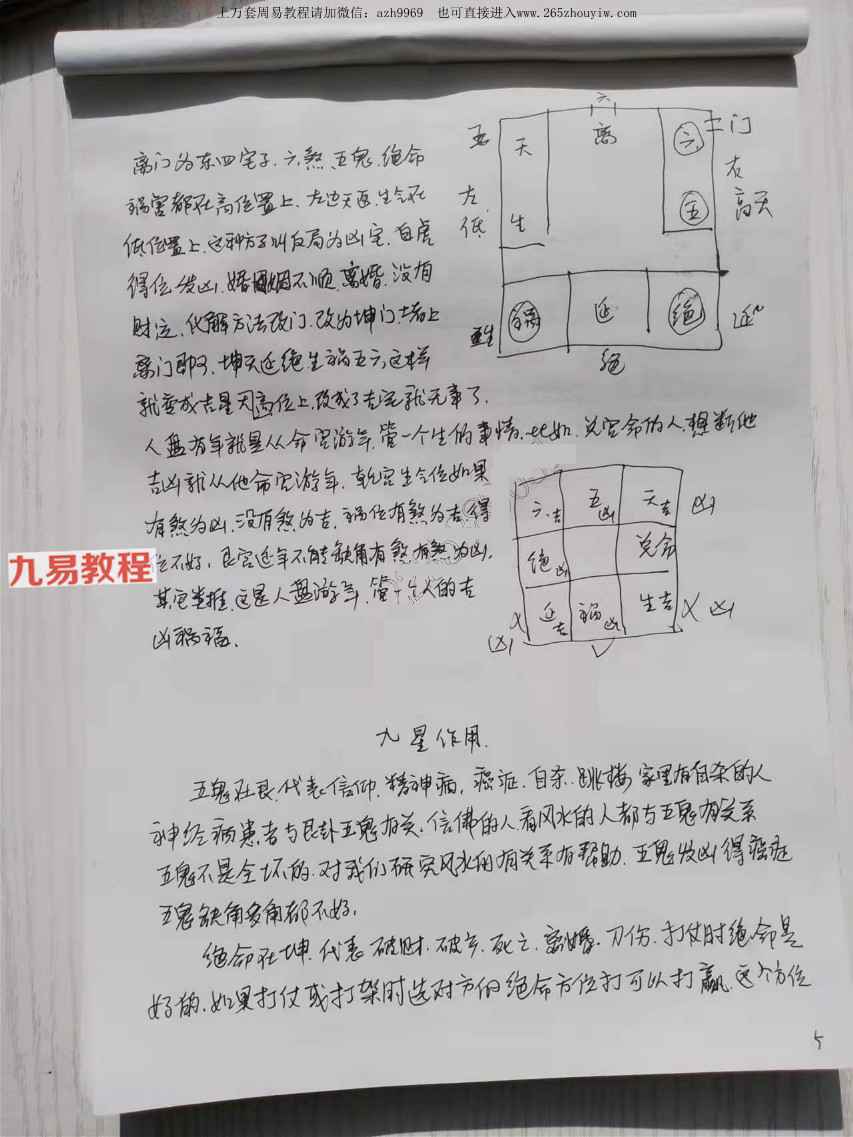 上万套周易教程请加微信：azh9969 也可直接进入www.265zhouyiw.com
离门为东四宅子.六煞.五鬼.绝命
祸害都在高位置上.左边天医.生气在
低位置上.这种方子叫反局为凶宅.白虎
得位发凶.婚姻不顺.离婚.没有
财运.化解方法改门.改为坤门.堵上
离门即可.坤天延绝生祸五六.这样
就变成吉星因高位上.改成了吉宅就无事了.
人盘游年就是从命宫游年.管一个生的事情.比如.兑宫命的人.想断他
吉凶就从他命宫游年.乾宫生气位如果
有煞为凶.没有煞为吉.祸位有煞为吉.得
位不好.艮宫延年不能缺角有煞.有煞为凶.
其它类推.这是人盘游年.管一个人的吉
凶祸福.
六
离
天
生
左
低
六
五
门
右
高
天
祸
延
绝
生
延
绝
六吉
五凶
天吉
凶
绝凶
兑命
延吉
祸凶
生吉
凶
凶
九易教程
九星作用.
五鬼在艮.代表信仰.精神病.癌症.自杀.跳楼.家里有自杀的人
神经病患者与艮卦五鬼有关.信佛的人看风水的人都与五鬼有关系
五鬼不是全坏的.对我们研究风水的有关系有帮助.五鬼发凶得癌症
五鬼缺角多角都不好.
绝命在坤.代表破财.破产.死亡.离婚.刀伤.打仗时绝命是
好的.如果打仗或打架时选对方的绝命方位打可以打赢.这个方位
5